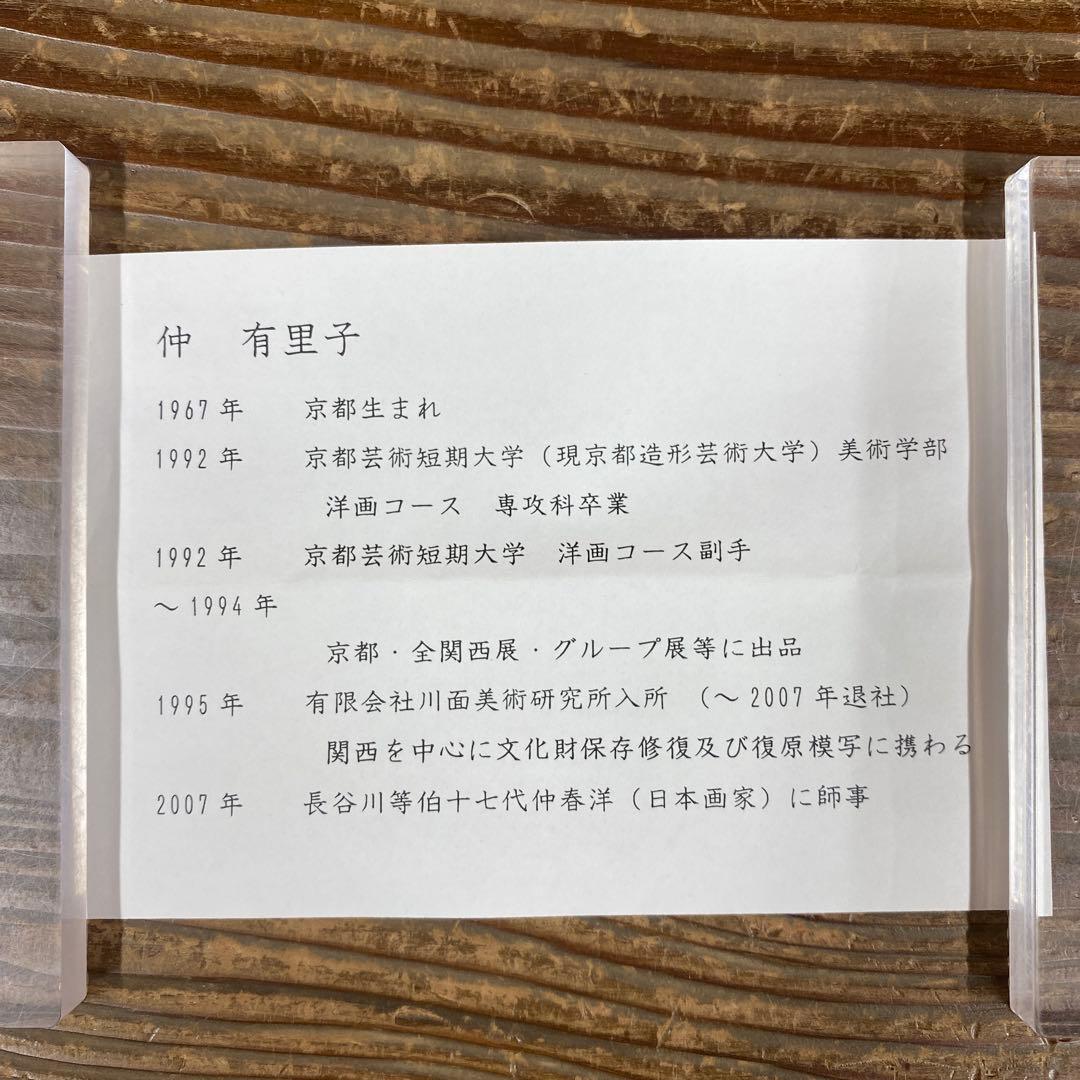 仲　有里子
1967年　京都生まれ
1992年　京都芸術短期大学（現京都造形芸術大学）美術学部
洋画コース　専攻科卒業
1992年　京都芸術短期大学　洋画コース副手
～1994年
京都・全関西展・グループ展等に出品
1995年　有限会社川面美術研究所入所　（～2007年退社）
関西を中心に文化財保存修復及び復原模写に携わる
2007年　長谷川等伯十七代仲春洋（日本画家）に師事